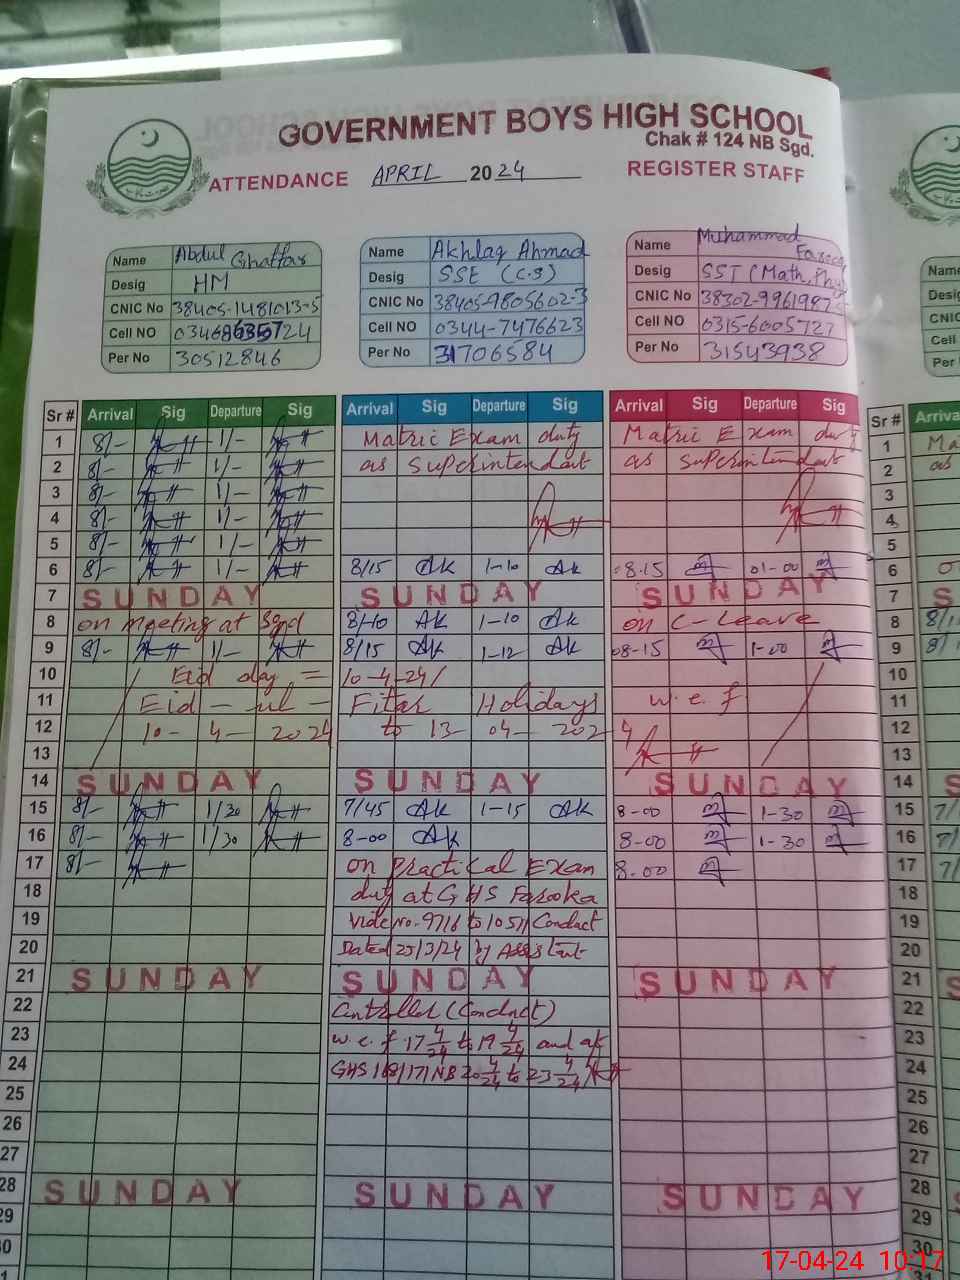 GOVERNMENT BOYS HIGH SCHOOL
Chak # 124 NB Sgd.
ATTENDANCE APRIL 2024 REGISTER STAFF
Name Abdul Ghaffar
Desig HM
CNIC No 38405-1481013-5
Cell NO
Per No 30512846
Name Akhlaq Ahmad
Desig SSE (C.S)
CNIC No 38405-9805602-3
Cell NO 0344-7476623
Per No 31706584
Name Muhammad Farooq
Desig SST (Math, Phy)
CNIC No 38302-9961987
Cell NO 0315-6005727
Per No 31543938
Name
Desig
CNIC
Cell
Per
Sr # Arrival Sig Departure Sig Arrival Sig Departure Sig Arrival Sig Departure Sig Sr # Arriva
1 8/- 1/- Matric Exam duty Matric Exam duty 1 Ma
2 8/- 1/- as Superintendent as Superintendent 2 as
3 8/- 1/- 3
4 8/- 1/- 4
5 8/- 1/- 5
6 8/- 1/- 8/15 Ak 1-10 Ak 08.15 01-00 6
7 SUNDAY SUNDAY SUNDAY 7 S
8 on meeting at Sgd 8/10 Ak 1-10 Ak on C-Leave 8 8/1
9 8/- 1/- 8/15 Ak 1-12 Ak 08-15 1-00 9 8/
10 Eid day = 10-4-24/ 10
11 Eid - ul - Fitar Holidays w.e.f 11
12 10- 4- 2024 to 13- 04- 2024 12
13 13
14 SUNDAY SUNDAY SUNDAY 14
15 8/- 1/30 7/45 Ak 1-15 Ak 8-00 1-30 15 7/
16 8/- 1/30 8-00 Ak 8-00 1-30 16 7/
17 8/- on Practical Exam 8-00 17 7/
18 duty at GHS Farooka 18
19 vide no. 9716 to 10511 Conduct 19
20 Dated 25/3/24 by Assistant 20
21 SUNDAY SUNDAY SUNDAY 21 S
22 Controller (Conduct) 22
23 w.e.f 17 4/24 to 19 4/24 and at 23
24 GHS 168/171 NB 20 4/24 to 23 4/24 24
25 25
26 26
27 27
28 SUNDAY SUNDAY SUNDAY 28
29 29
30 30
31
17-04-24 10:17